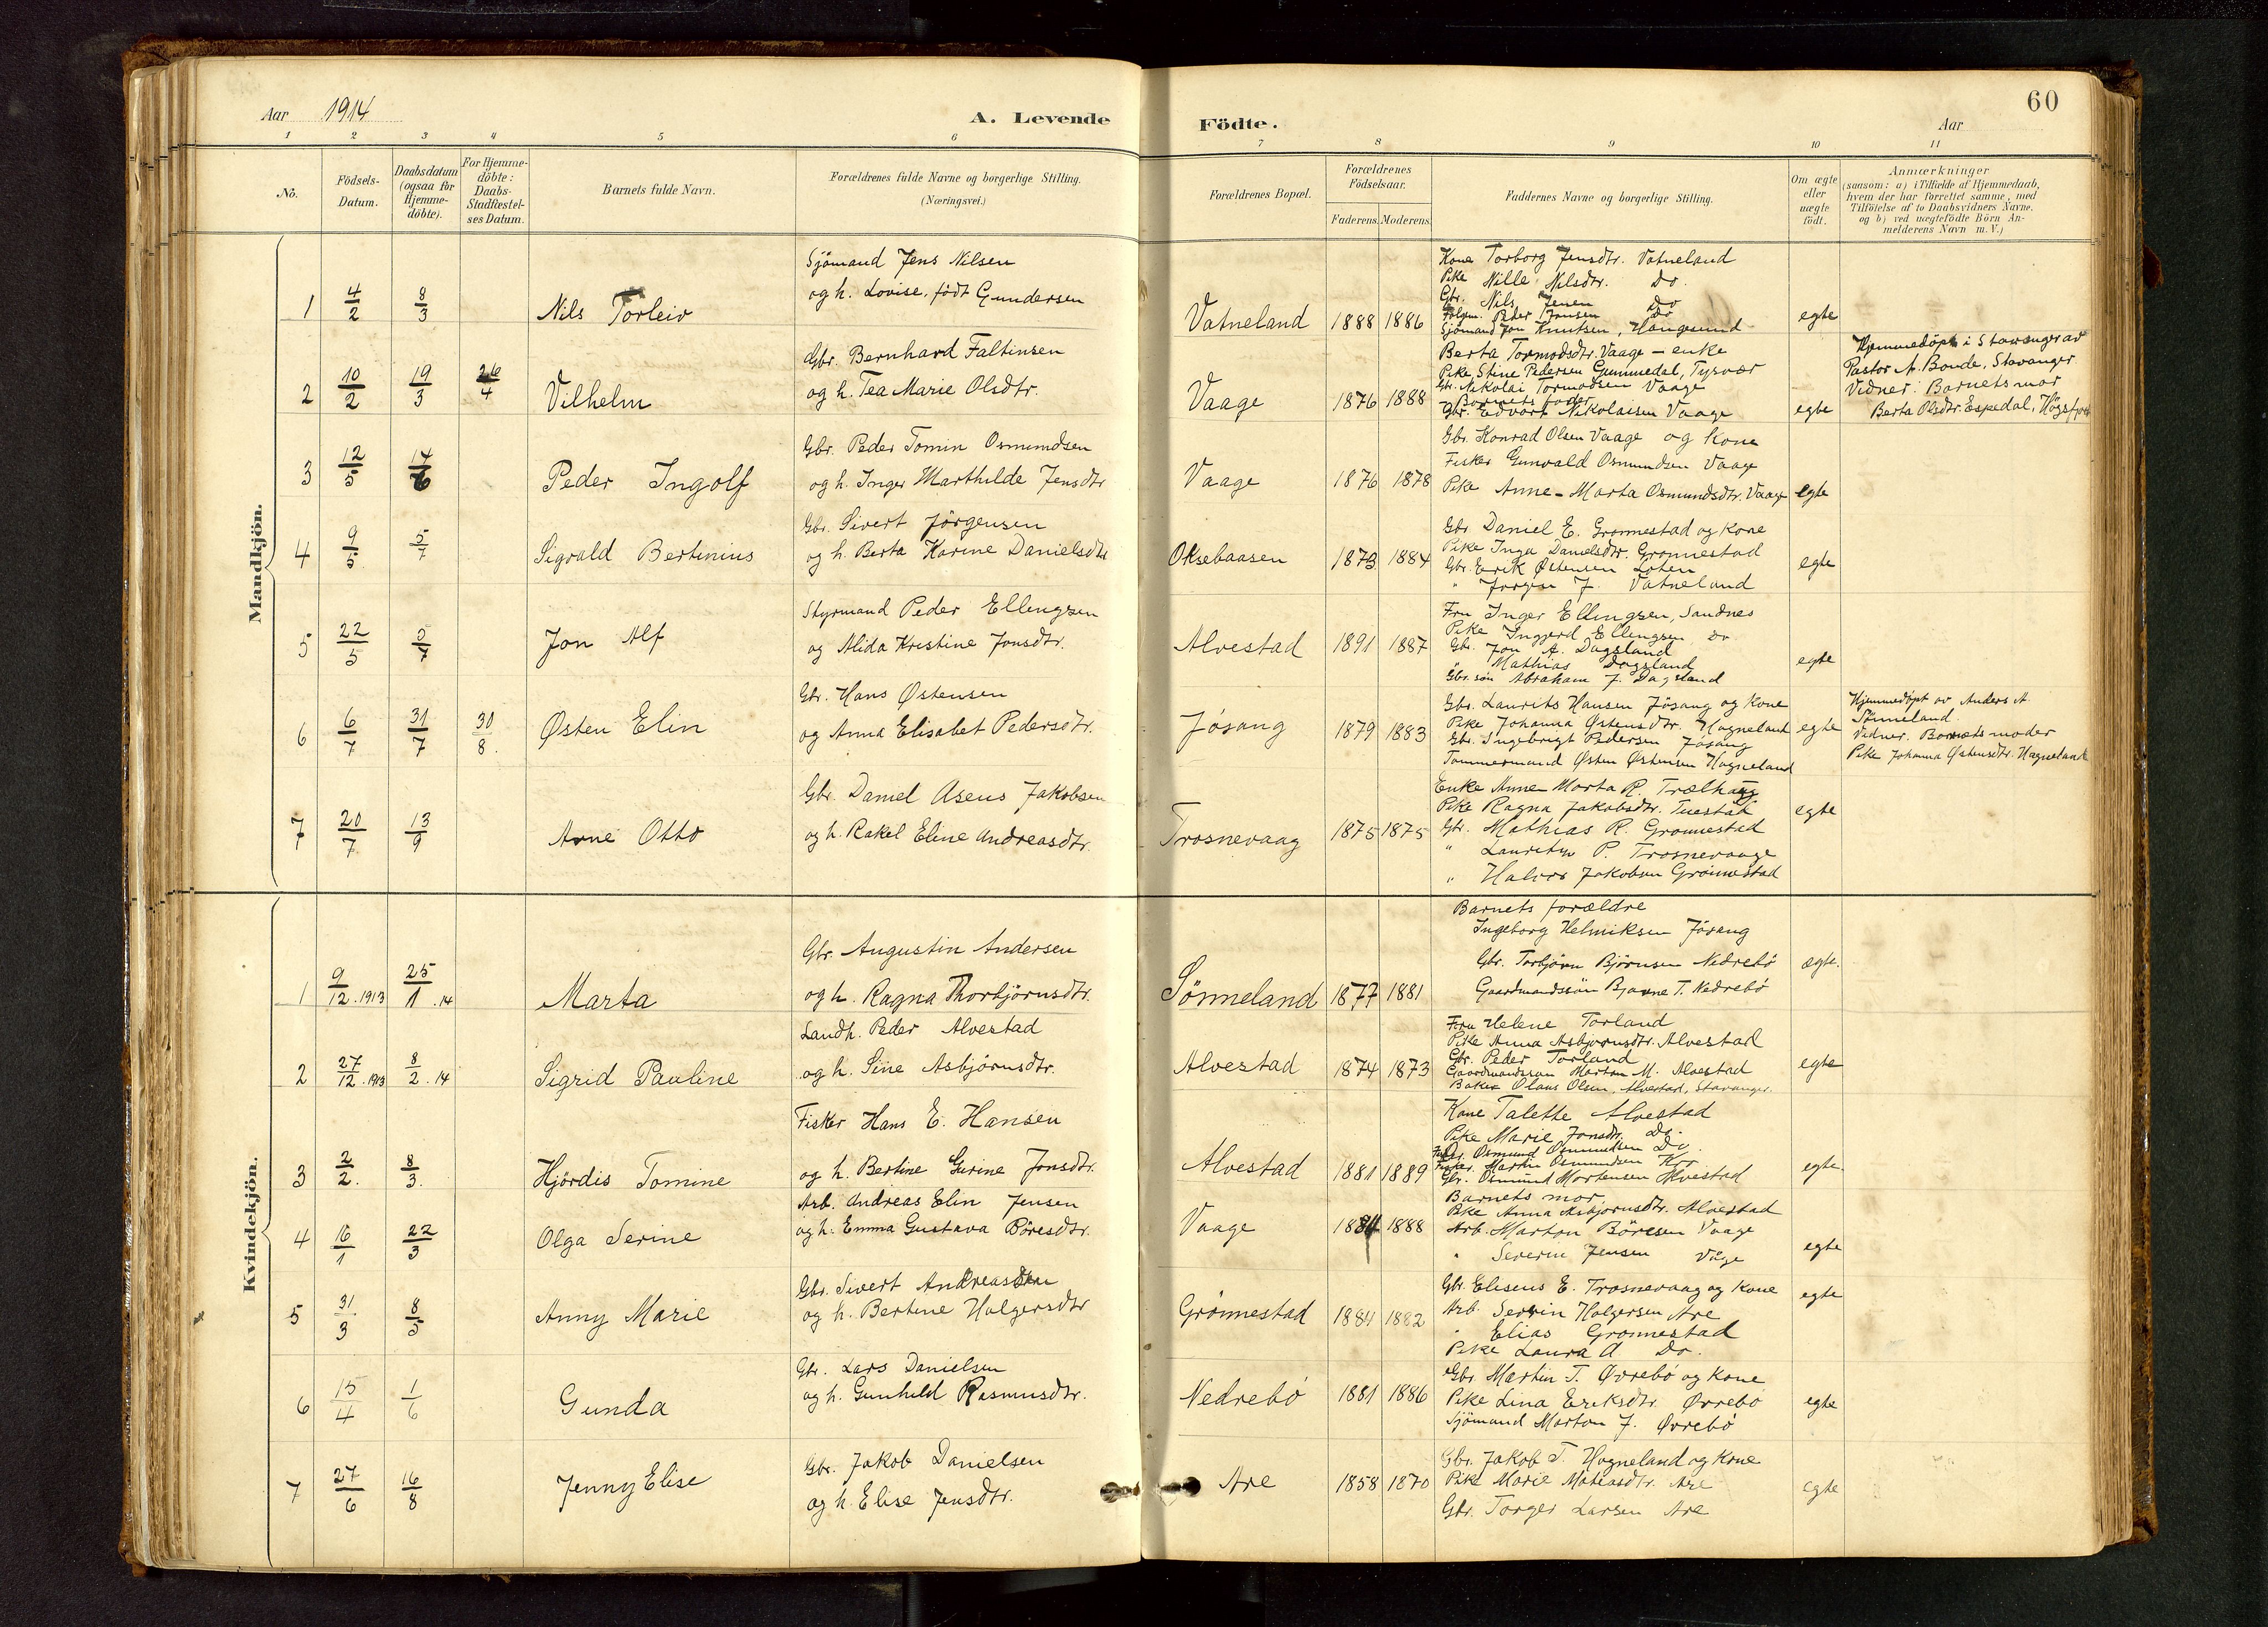 Aar 1914
A. Levende
Födte.
Aar
60
1 2 3 4 5 6 7 8 9 10 11
No.
Födsels-
Datum.
Daabsdatum
(ogsaa for
Hjemme-
döbte).
For Hjemme-
döbte:
Daabs-
Stadfæstel-
ses Datum.
Barnets fulde Navn.
Forældrenes fulde Navne og borgerlige Stilling.
(Næringsvei.)
Forældrenes Bopæl.
Forældrenes
Födselsaar.
Faderens. Moderens.
Faddernes Navne og borgerlige Stilling.
Om ægte
eller
uægte
födt.
Anmærkninger
(saasom: a) i Tilfælde af Hjemmedaab,
hvem der har forrettet samme, med
Tilföielse af to Daabsvidners Navne.
og b) ved uægtefödte Börn An-
melderens Navn m. V.)
Mandkjön.
1 4/2 8/3 Nils Torleiv
Sjömand Jens Nilsen
og h. Lovise, födt Gundersen
Vatneland 1888 1886
Kone Torborg Jensdtr. Vatneland
Pike Nille Nilsdtr. Do.
Gbr. Nils Jensen Do
Peder Jonsen Do
Sjömand Jon Knutsen, Haugesund
egte
2 10/2 19/3 26/4 Vilhelm
Gbr. Bernhard Faltinsen
og h. Tea Marie Olsdtr.
Vaage 1876 1888
Berta Tormodsdtr. Vaage - enke
Pike Stine Pedersen Gummedal, Tysvær
Gbr. Nikolai Tormodsen Vaage
- Barnets fader
Gbr. Edvart Nikolaisen Vaage
egte
Hjemmedöpt i Stavanger av
Pastor A. Bonde, Stavanger.
Vidner: Barnets mor
Berta Olsdtr. Espedal, Högsfjord
3 12/5 14/6 Peder Ingolf
Gbr. Peder Tomin Osmundsen
og h. Inger Marthilde Jensdtr
Vaage 1876 1878
Gbr. Konrad Olsen Vaage og Kone
Fisker Gunvald Osmundsen Vaage
Pike Anne-Marta Osmundsdtr. Vaage
egte
4 9/5 5/7 Sigvald Bertinius
Gbr. Sivert Jörgensen
og h. Berta Karine Danielsdtr
Oksebaasen 1873 1884
Gbr Daniel E. Gronnestad og Kone
Pike Inga Danielsdtr. Gronnestad
Gbr. Erik Østensen Loten
" Jorgen J. Vatneland
egte
5 22/5 5/7 Jon Alf
Styrmand Peder Ellingsen
og Alida Kristine Jonsdtr.
Alvestad 1891 1887
Fru Inger Ellingsen, Sandnes
Pike Ingjerd Ellingsen Do
Gbr. Jon A. Dagsland
" Mathias Dagsland
Gbr. søn Abraham J. Dagsland
egte
6 6/7 31/7 30/8. Østen Elin
Gbr. Hans Østensen
og Anna Elisabet Pedersdtr.
Jösang 1879 1883
Gbr. Laurits Hansen Jösang og Kone
Pike Johanna Østensdtr. Hagneland
Gbr. Ingebrigt Pedersen Jösang
Tömmermand Østen Østensen Hagneland
egte
Hjemmedöpt av Anders A.
Sönneland.
Vidner. Barnets moder
Pike Johanna Østensdtr. Hagneland
7 20/7 13/9 Arne Otto
Gbr. Daniel Aseus Jakobsen
og h. Rakel Eline Andreasdtr.
Trosnevaag 1875 1875
Enke Anne Marta R. Trælhaug
Pike Ragna Jakobsdtr. Tuastad
Gbr. Mathias R. Gronnestad
" P. Trosnevaage
" Halvor Jakobsen Grönnestad
egte
Kvindekjön.
1 9/12.1913 25/1.14 Marta
Gbr. Augustin Andersen
og h. Ragna Thorbjörnsdtr.
Sönneland 1877 1881
Barnets forældre
Ingeborg Helmiksen Jösang
Gbr. Torbjörn Björnsen Nedrebö
Gaardmandssön Bjarne T. Nedrebö
ægte.
2 27/12.1913 8/2.14 Sigrid Pauline
Landh. Peder Alvestad
og h. Sine Asbjörnsdtr.
Alvestad 1874 1873
Fru Helene Torland
Pike Anna Asbjornsdtr. Alvestad
Gbr. Peder Torland
Gaardmandssön Morton M. Alvestad
Baker Olaus Olsen, Alvestad, Stavanger.
egte
3 2/2. 8/3. Hjördis Tomine
Fisker Hans E. Hansen
og h. Bertine Gurine Jonsdtr.
Alvestad 1881 1889
Kone Talette Alvestad
Pike Marie Jonsdtr. Do.
Osmund Osmundsen Do.
Fisker. Martin Osmundsen
Gbr. Osmund Mortensen Alvestad
egte.
4 16/1 22/3 Olga Serine
Arb. Andreas Elin Jensen
og h. Emma Gustava Böresdtr.
Vaage 1884 1888
Barnets mor
Pike Anna Asbjornsdtr. Alvestad
Arb. Morton Böresen Vaage
" Severin Jensen Våge
egte
5 31/3 8/5 Anny Marie
Gbr. Sivert Andreassen
og h. Bertine Holgersdtr
Grönnestad 1884 1882
Gbr. Eliseus E. Trosnevaag og Kone
Arb. Serin Holgersen Are
" Elias Gronnestad
Pike Laura A Do.
egte
6 15/4 1/6 Gunda
Gbr. Lars Danielsen
og h. Gunhild Rasmusdtr.
Nedrebö 1881 1886
Gbr. Martin T. Øvrebö og Kone
Pike Lina Eriksdtr. Øvrebö
Sjömand Morton J. Øvrebö
egte
7 27/6 16/8 Jenny Elise
Gbr. Jakob Danielsen
og h. Elise Jensdtr.
Are 1858 1870
Gbr. Jakob T. Hagneland og Kone
Pike Marie Mateasdtr. Are
Gbr. Torger Larsen Are
egte